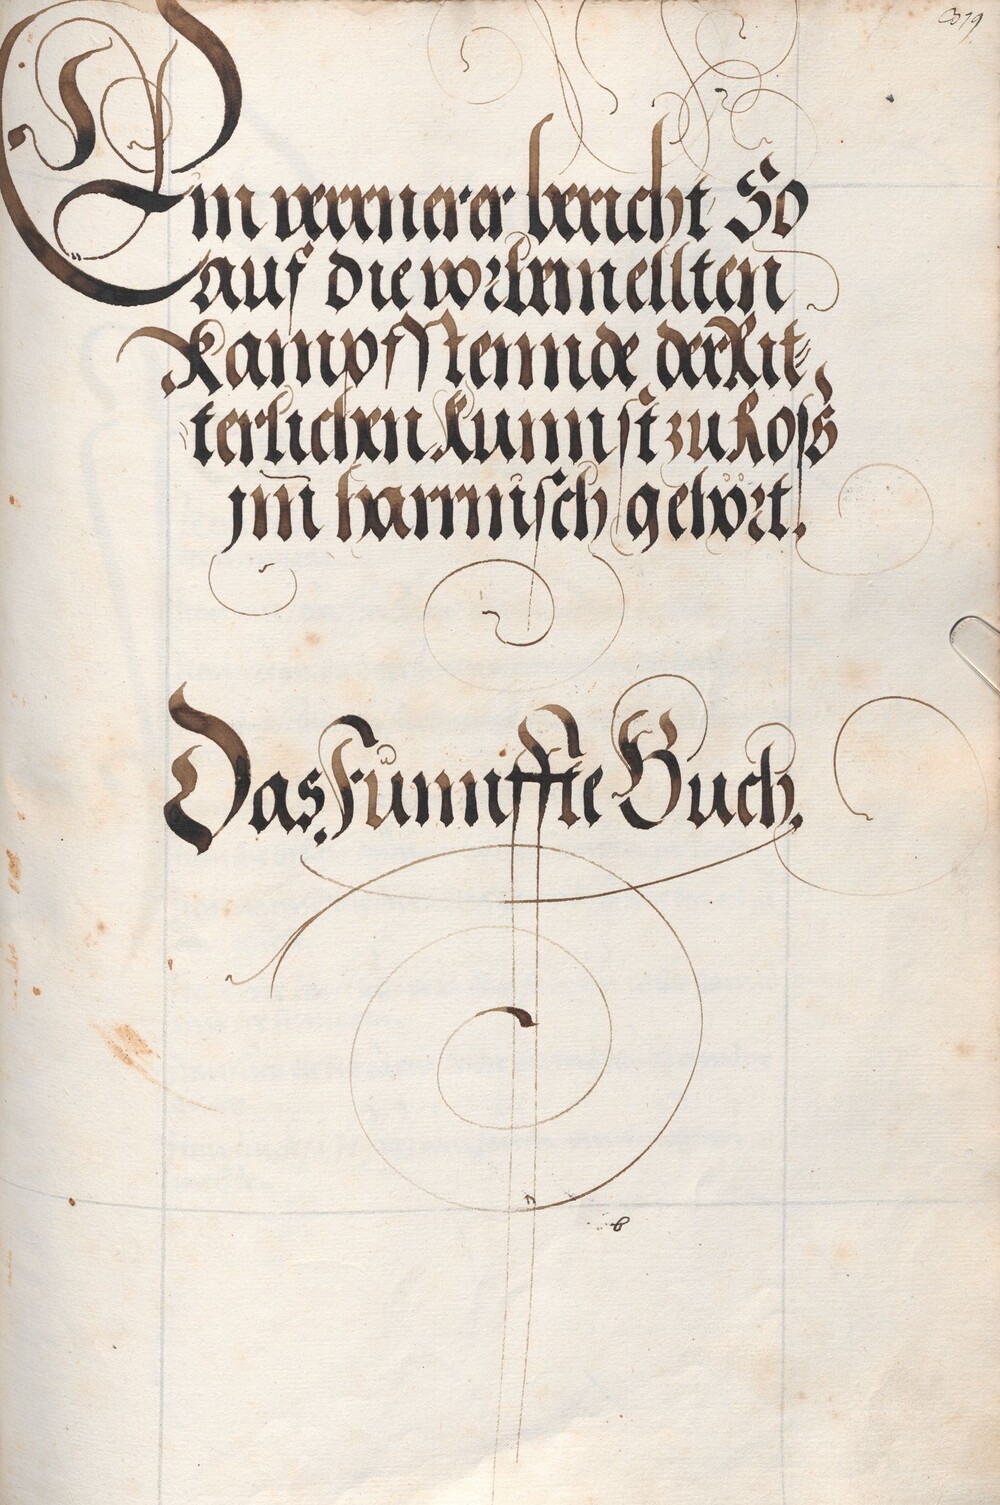 Ein verernerer bericht So
auf die vorbemellten
Kampfstennde der Rit-
terlichen Kunnst zu Roß
jm harrnisch gehört.
Das Fünnffte Buch.